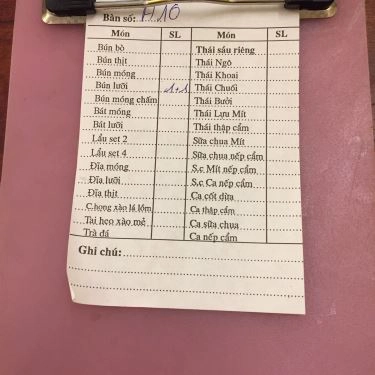 Bàn số: A10
Món SL Món SL
Bún bò Thái sầu riêng
Bún thịt Thái Ngô
Bún móng Thái Khoai
Bún lưỡi 1+1 Thái Chuối
Bún móng chấm Thái Bưởi
Bát móng Thái Lựu Mít
Bát lưỡi Thái thập cẩm
Lẩu set 2 Sữa chua Mít
Lẩu set 4 Sữa chua nếp cẩm
Đĩa móng S.c Mít nếp cẩm
Đĩa lưỡi S.c Ca nếp cẩm
Đĩa thịt Ca cốt dừa
C.họng xào lá lốm Ca thập cẩm
Tai heo xào mẻ Ca sữa chua
Trà đá Ca nếp cẩm
Ghi chú: